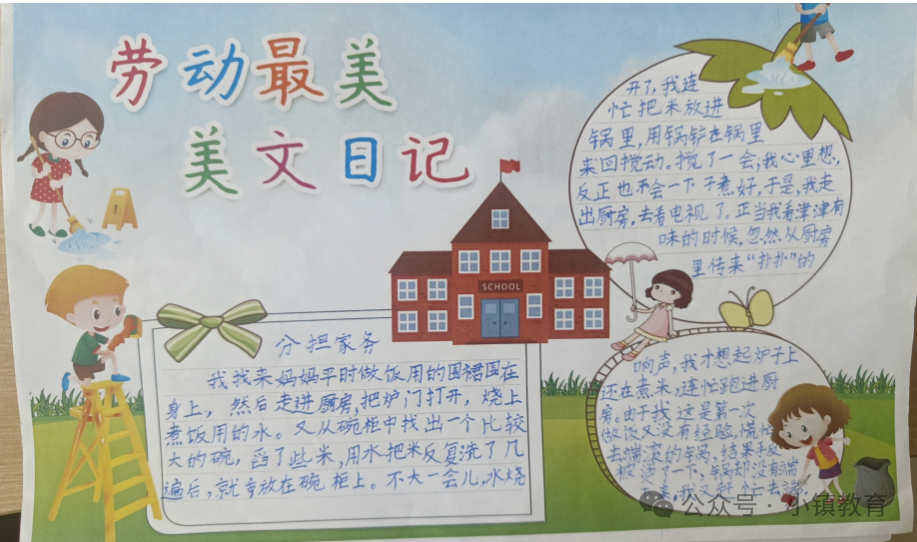 劳动最美
美文日记
SCHOOL
分担家务
我找来妈妈平时做饭用的围裙围在
身上，然后走进厨房，把炉门打开，烧上
煮饭用的水。又从碗柜中找出一个比较
大的碗，舀了些米，用水把米反复洗了几
遍后，就放在碗柜上。不大一会儿，水烧
开了，我连
忙把米放进
锅里，用锅铲在锅里
来回搅动。搅了一会，我心里想，
反正也不会一下子煮好，于是，我走
出厨房，去看电视了。正当我看津津有
味的时候，忽然从厨房
里传来“扑扑”的
响声，我才想起炉子上
还在煮米，连忙跑进厨
房，由于我这是第一次
做饭又没有经验，慌忙
去端滚的锅，结果手反
被烫了一下，锅却没有端
我又赶忙去
公众号·小镇教育